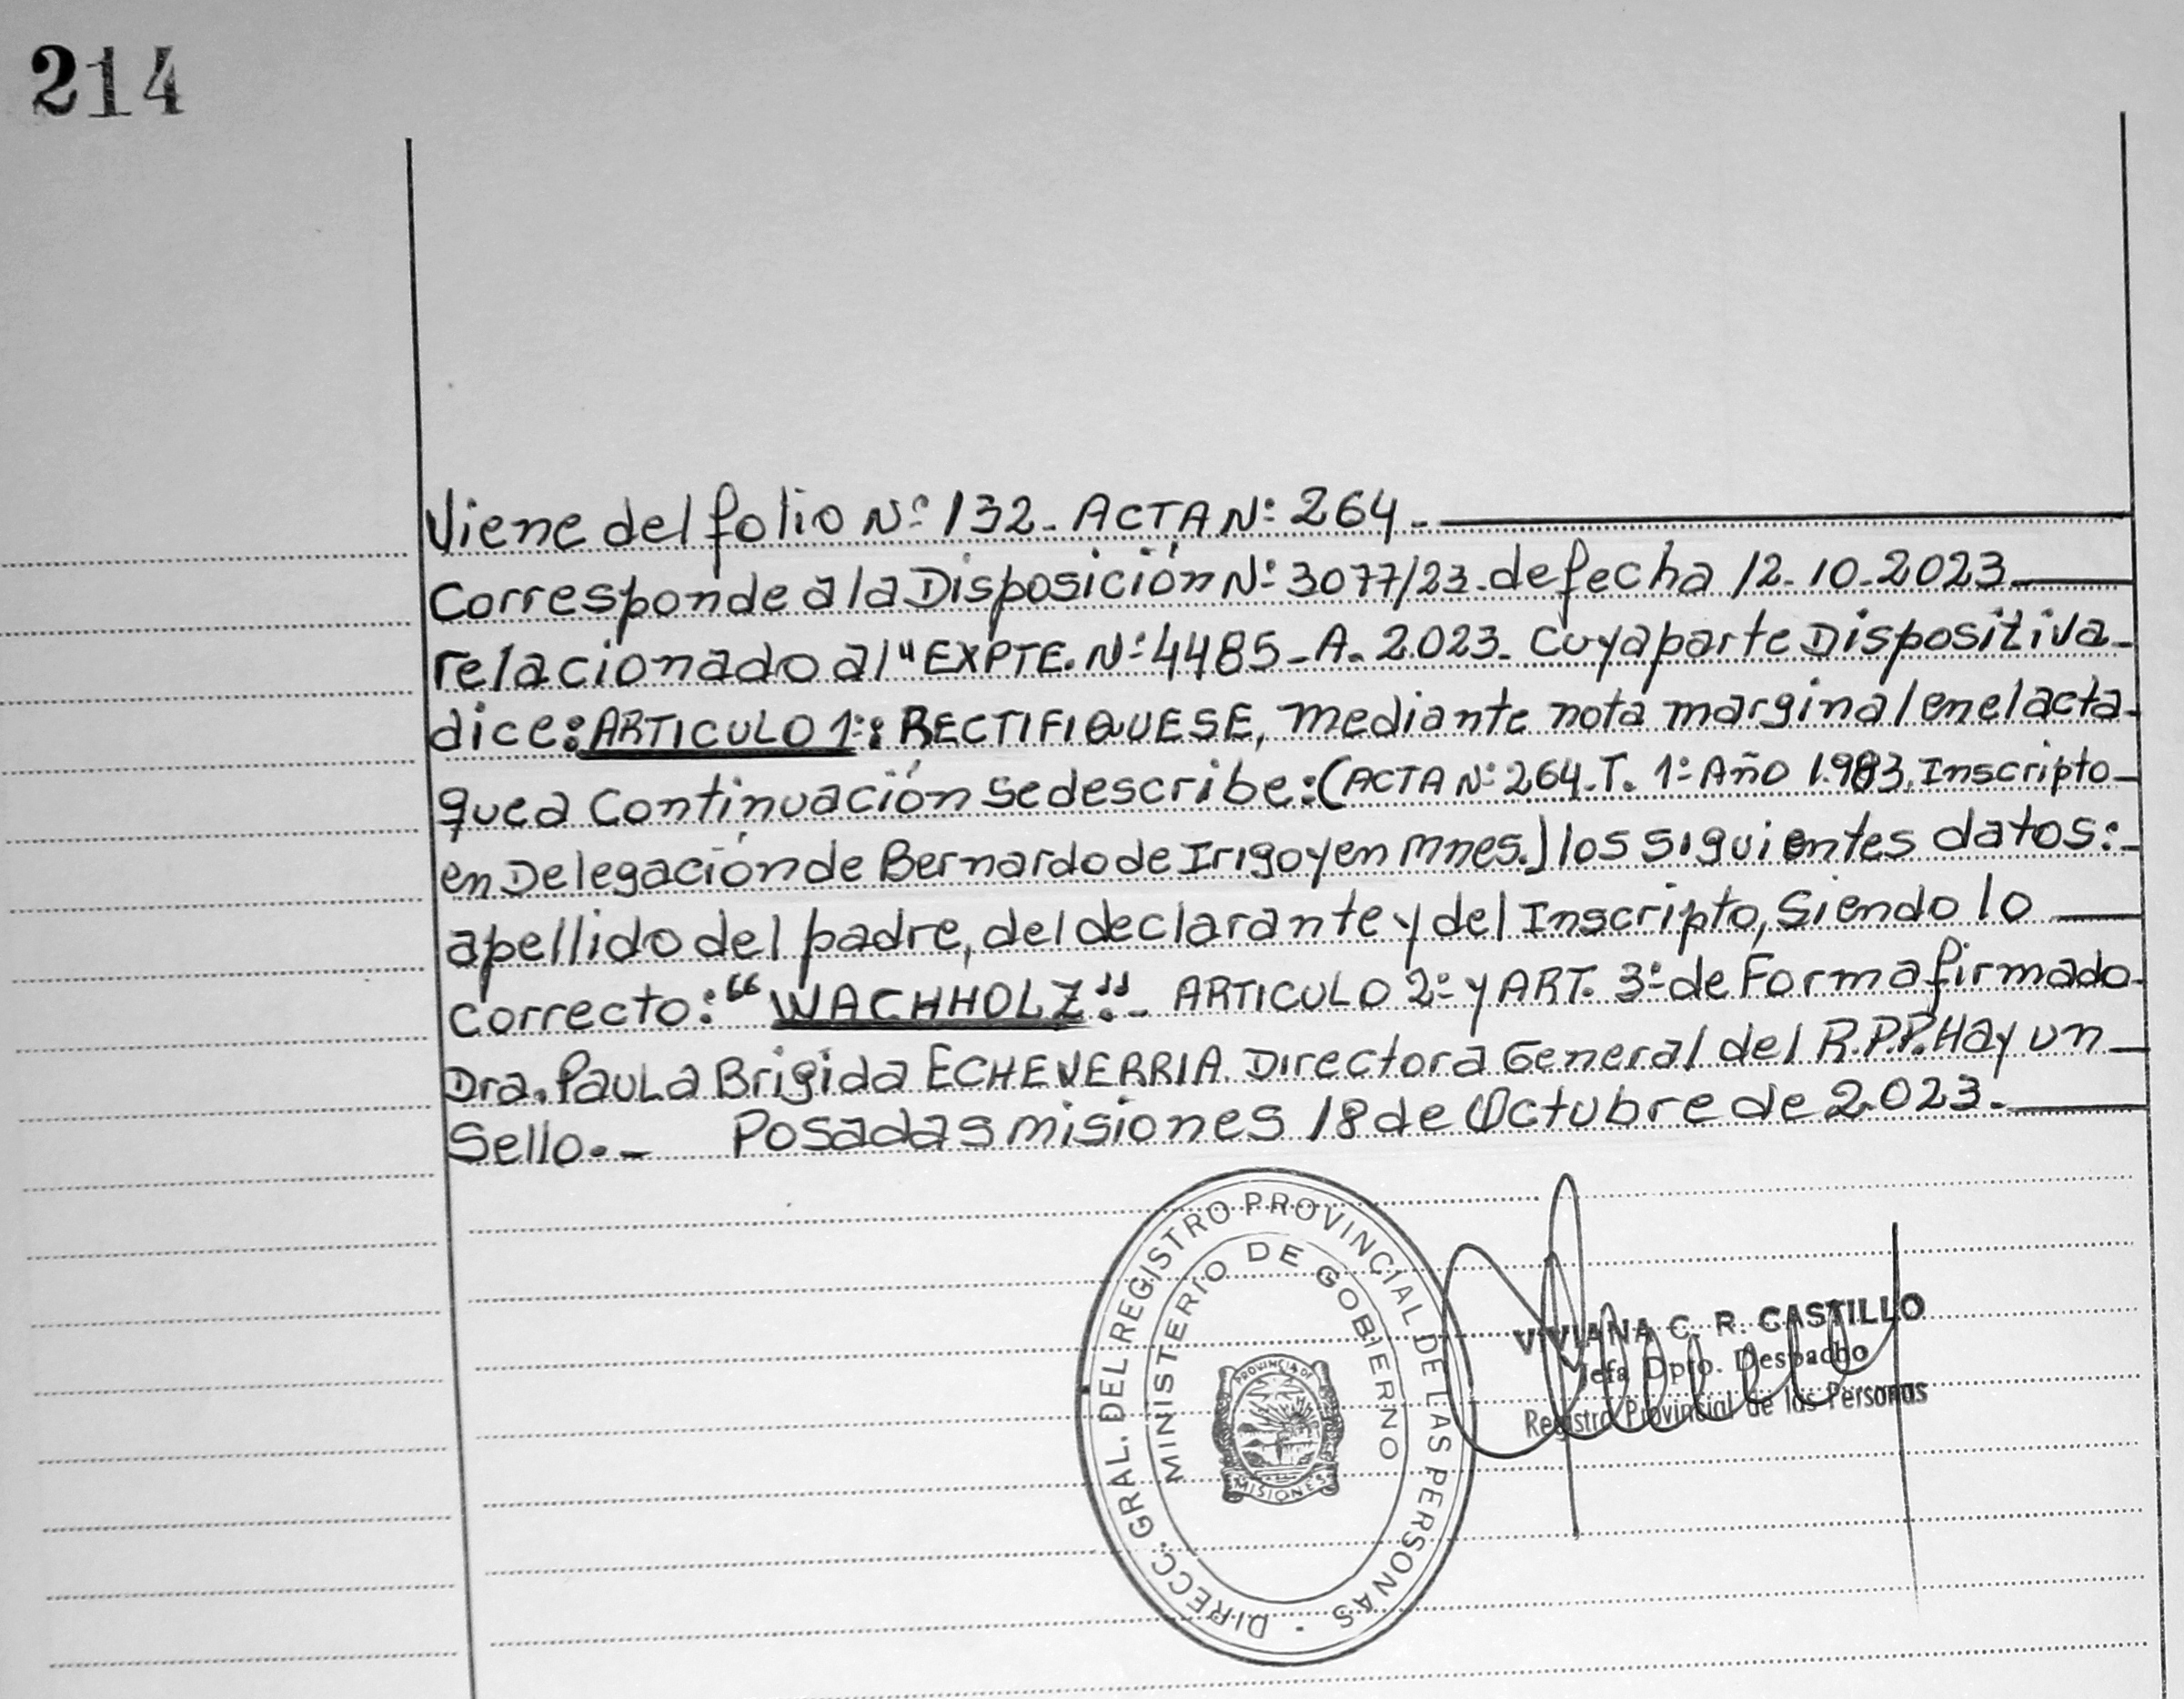 214
Viene del folio Nº 132. ACTA Nº 264.
Corresponde a la Disposición Nº 3077/23. de fecha 12.10.2023.
relacionado al "EXPTE. Nº 4485-A. 2.023. Cuya parte Dispositiva
dice: ARTICULO 1º: RECTIFIQUESE, mediante nota marginal en el acta
que a Continuación se describe: (ACTA Nº 264. T. 1º Año 1.983. Inscripto
en Delegación de Bernardo de Irigoyen Mnes.) los siguientes datos:
apellido del padre, del declarante y del Inscripto, Siendo lo
Correcto: "WACHHOLZ". ARTICULO 2º y ART. 3º de Forma firmado
Dra. Paula Brigida ECHEVERRIA. Directora General del R.P.P. Hay un
Sello.- Posadas misiones 18 de Octubre de 2.023.
DIRECC. GRAL. DEL REGISTRO PROVINCIAL DE LAS PERSONAS
MINISTERIO DE GOBIERNO
PROVINCIA DE
MISIONES
VIVIANA C. R. CASTILLO
Jefa Dpto. Despacho
Registro Provincial de las Personas